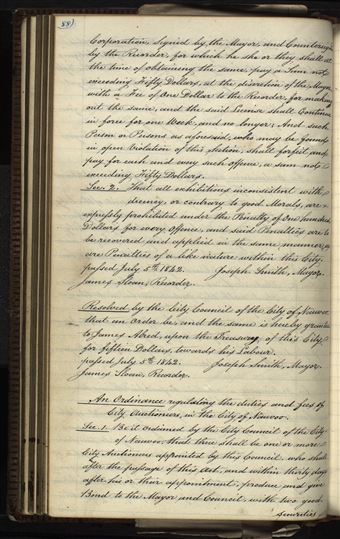 88)
Corporation, signed by the Mayor, and Countersigned
by the Recorder, for which he she or they shall at
the time of obtaining the same, pay a Sum not
exceeding Fifty Dollars, at the discretion of the Mayor,
with a Fee of One Dollar to the Recorder, for making
out the same, and the said License shall Continue
in force for one Week, and no longer; And such
Person or Persons as aforesaid, who may be found
in open Violation of this Section, shall forfeit and
pay for each and every such offence, a sum not
exceeding Fifty Dollars.
Sec. 2. That all exhibitions inconsistent with
decency, or contrary to good Morals, are
expressly prohibited under the Penalty of One hundred
Dollars for every Offence, and said Penalties are to
be recovered and applied in the same manner as
are Penalties of a like nature within this City.
passed July 5th. 1842. Joseph Smith, Mayor.
James Sloan, Recorder.
Resolved by the City Council of the City of Nauvoo
that an Order be, and the same is hereby granted
to James Alred, upon the Treasury of this City
for fifteen Dollars, towards his Labour.
passed July 5th. 1842. Joseph Smith, Mayor.
James Sloan, Recorder.
An Ordinance regulating the duties and fees of
City Auctioneers, in the City of Nauvoo.
Sec. 1. Be it ordained by the City Council of the City
of Nauvoo, that there shall be one or more
City Auctioneers appointed by this Council, who shall
after the passage of this Act, and within thirty days
after his or their appointment, produce and give
Bond to the Mayor and Council, with two good
securities